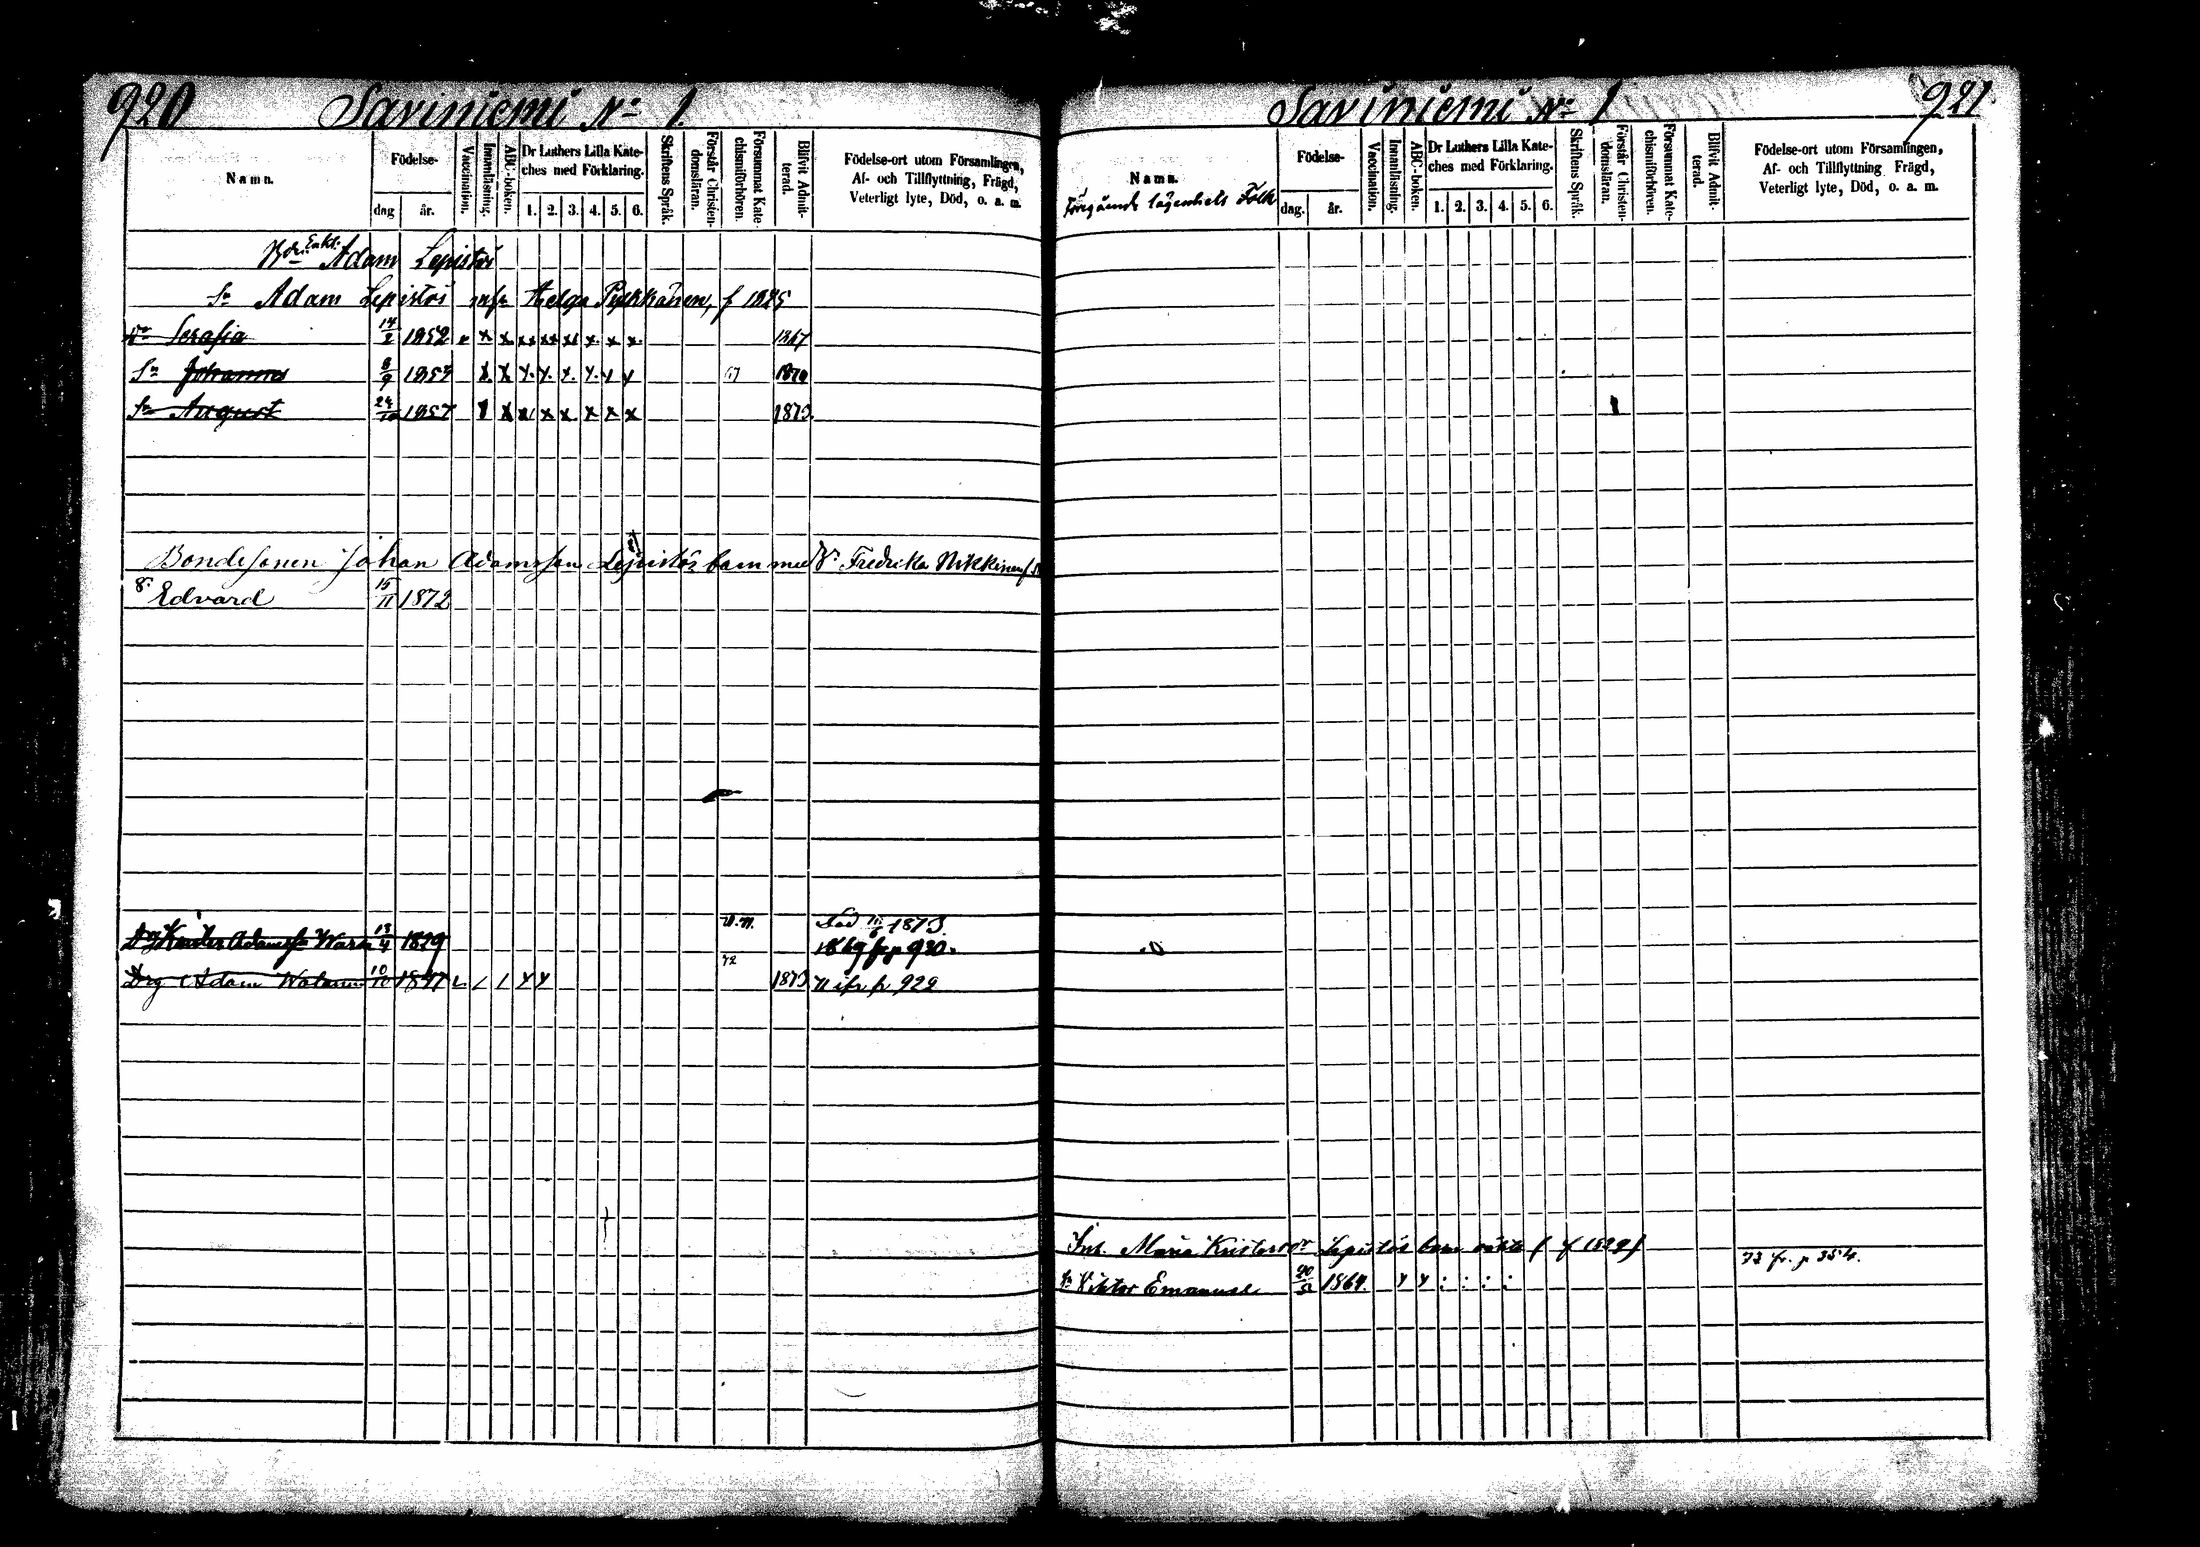 920 Saviniemi No 1.
Namn.
Födelse-
dag år.
Vaccination.
Innanläsning.
ABC-boken.
Dr Luthers Lilla Kate-
ches med Förklaring.
1. 2. 3. 4. 5. 6.
Skriftens Språk.
Förstår Christen-
domsläran.
Försummat Kate-
chismiförhören.
Blifvit Admit-
terad.
Födelse-ort utom Församlingen,
Af- och Tillflyttning, Frägd,
Veterligt lyte, Död, o. a. m.
Adam Lepistös
Sn Adam Lepistös Helga Pykkönen, f 1825
Dr Serafia 14/2 1852 x x x x x x x x 1867
Sn Johannes 8/9 1854 x x x x x x x x 1870
Sn August 24/10 1857 x x x x x x x x 1873.
Bondesonen Johan Adamsson Lepistös barn med Fredrika Nikkinen
S. Edvard 15/11 1872
Död 1873.
Drg Krister Adamss 13/4 1829 1869 fr p 930.
72
Drg Adam 10/10 1847 1873 71 ifr p 922
Saviniemi No 1 921
Namn.
Föregående lägenhets Folk
Födelse-
dag. år.
Vaccination.
Innanläsning.
ABC-boken.
Dr Luthers Lilla Kate-
ches med Förklaring.
1. 2. 3. 4. 5. 6.
Skriftens Språk.
Förstår Christen-
domsläran.
Försummat Kate-
chismiförhören.
Blifvit Admit-
terad.
Födelse-ort utom Församlingen,
Af- och Tillflyttning Frägd,
Veterligt lyte, Död, o. a. m.
Inh. Maria Kristersdr Lepistös barn (f 1829)
73 fr. p 354.
Sn Viktor Emanuel 1864.